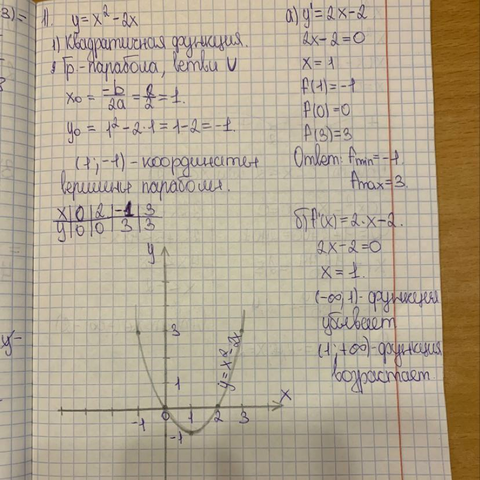 11. y = x² - 2x
1) Квадратичная функция.
Гр-парабола, ветви ∪
x₀ = -b/2a = 2/2 = 1.
y₀ = 1² - 2·1 = 1 - 2 = -1.
(1; -1) - координаты
вершины параболы.
x | 0 | 2 | -1 | 3
y | 0 | 0 | 3 | 3
y
3
1
x
-1 0 1 2 3
-1
y = x² - 2x
а) y' = 2x - 2
2x - 2 = 0
x = 1
f(1) = -1
f(0) = 0
f(3) = 3
Ответ: fmin = -1
fmax = 3.
б) f'(x) = 2·x - 2.
2x - 2 = 0
x = 1.
(-∞; 1) - функция
убывает
(1; +∞) - функция
возрастает
3) =
y' -